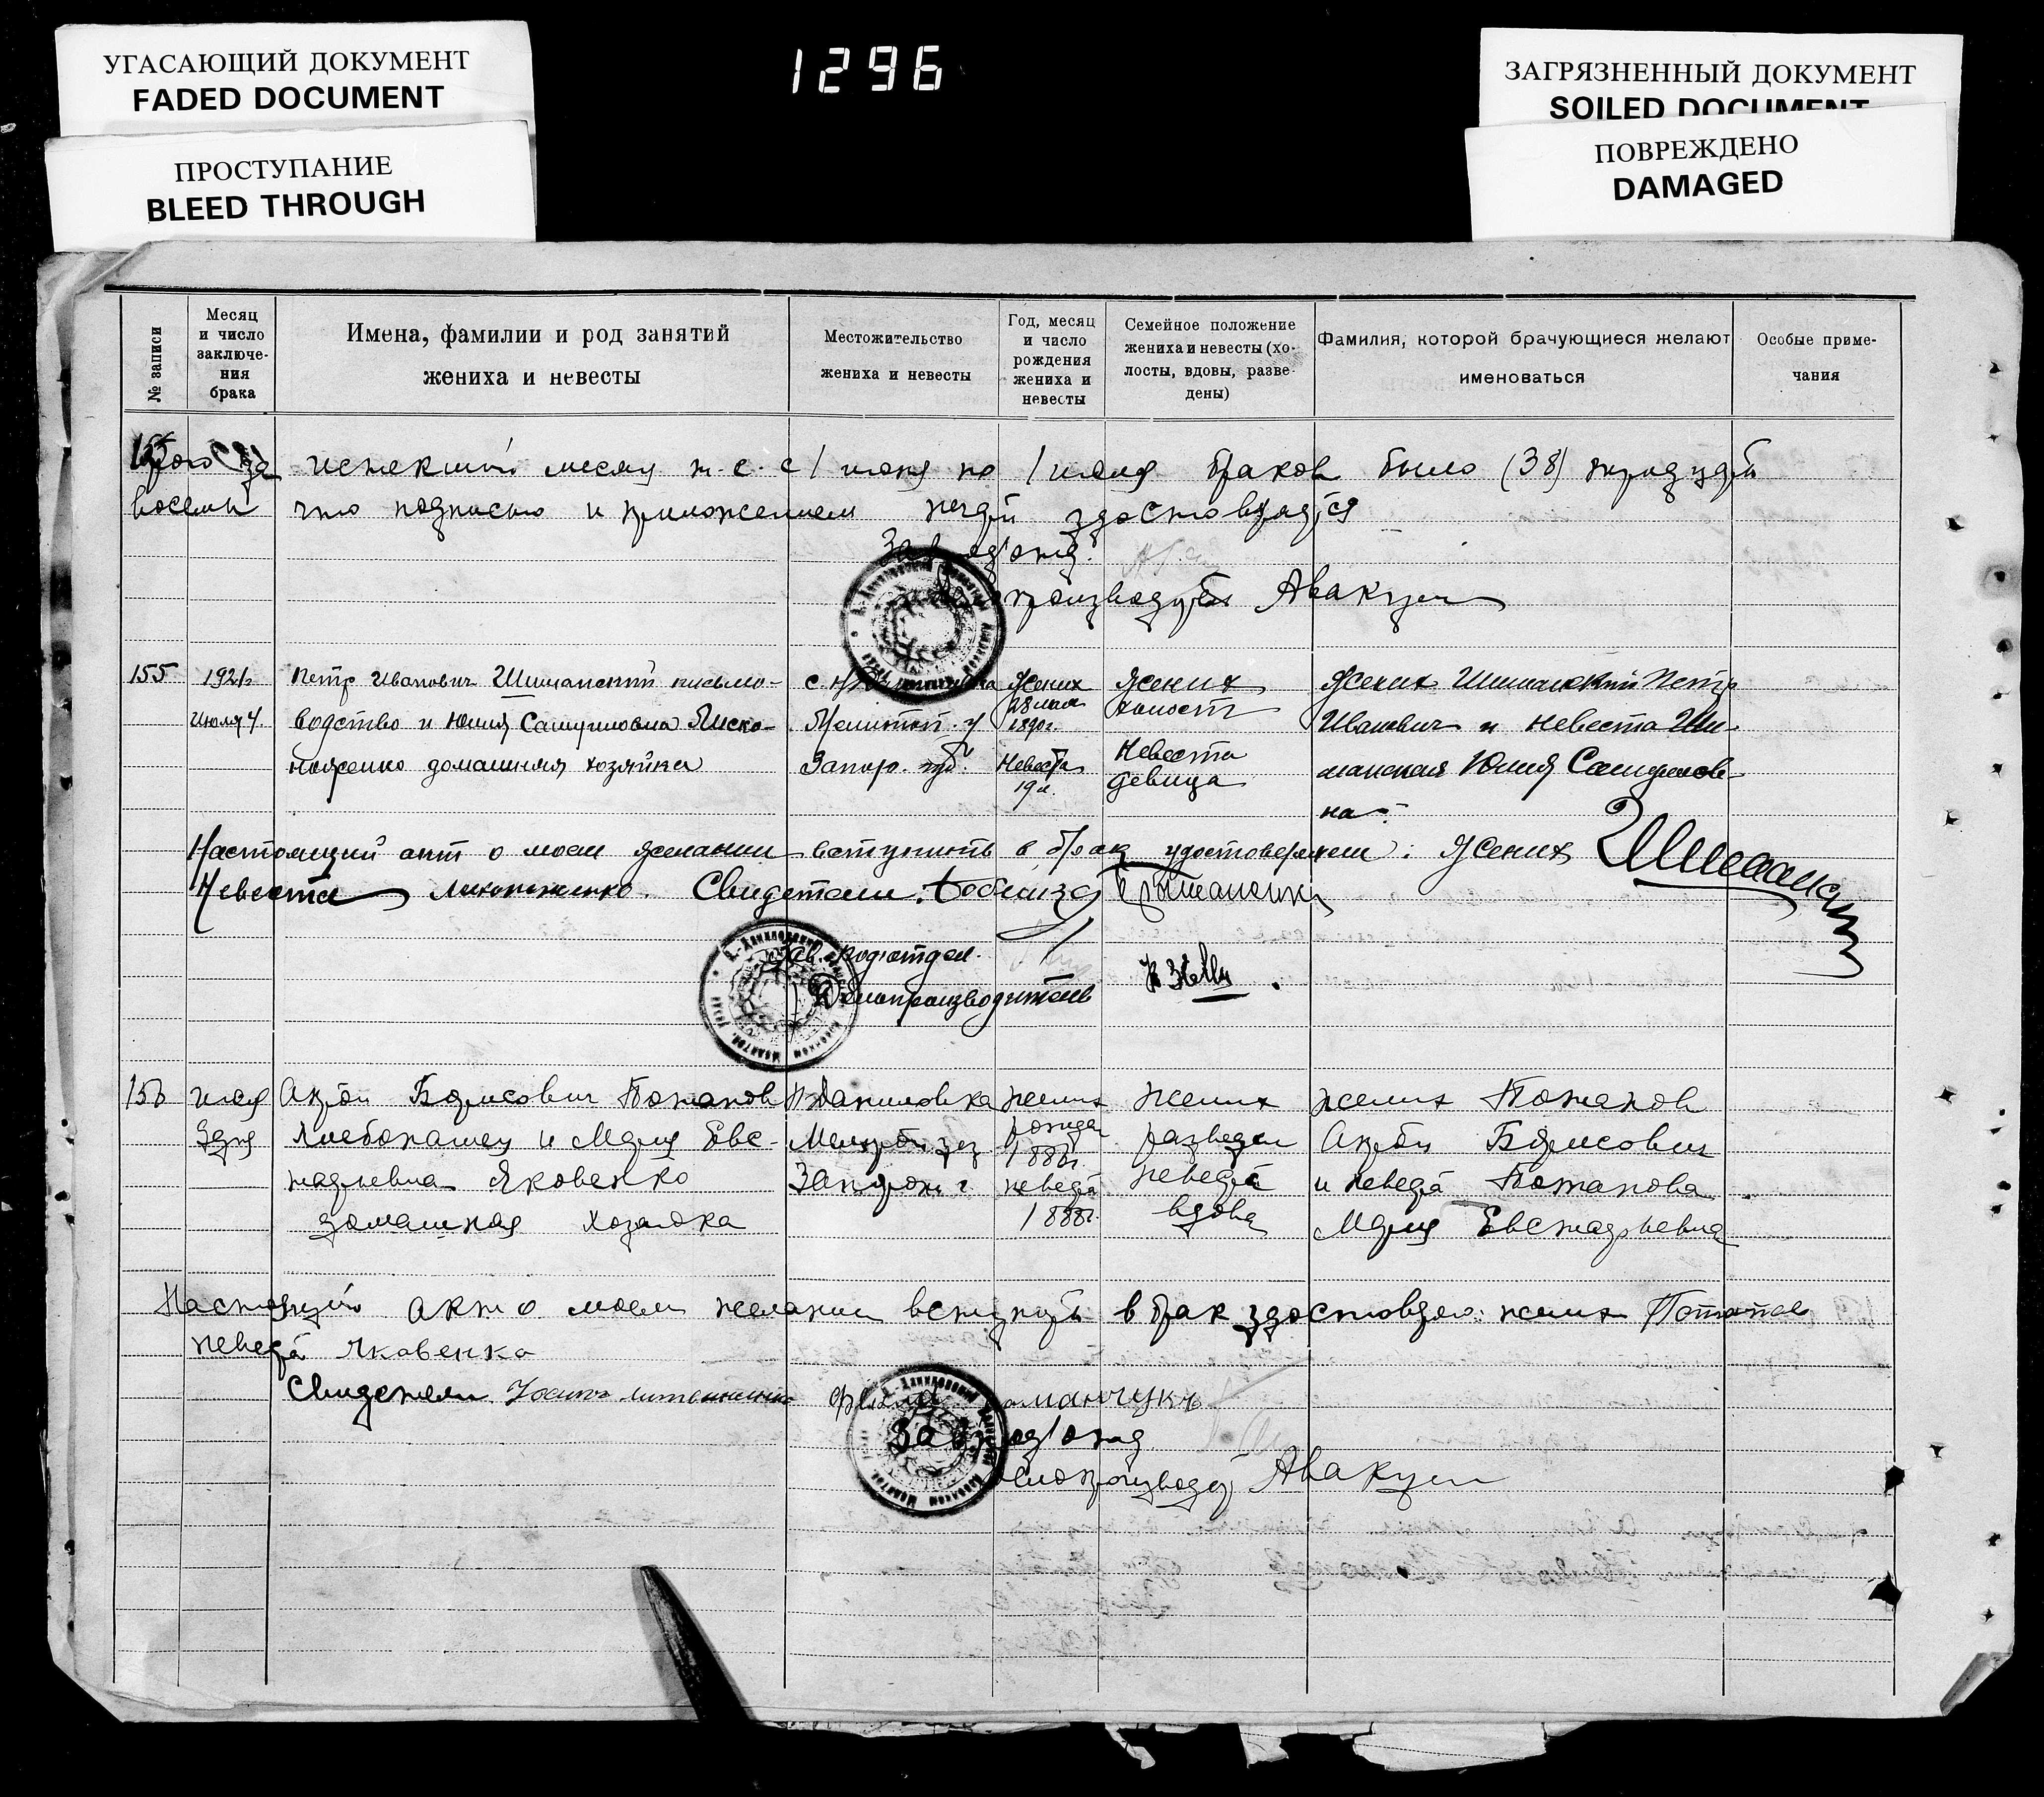 УГАСАЮЩИЙ ДОКУМЕНТ
FADED DOCUMENT
ПРОСТУПАНИЕ
BLEED THROUGH
1296
ЗАГРЯЗНЕННЫЙ ДОКУМЕНТ
SOILED DOCUMENT
ПОВРЕЖДЕНО
DAMAGED
№ записи
Месяц и число заключения брака
Имена, фамилии и род занятий жениха и невесты
Местожительство жениха и невесты
Год, месяц и число рождения жениха и невесты
Семейное положение жениха и невесты (холосты, вдовы, разведены)
Фамилия, которой брачующиеся желают именоваться
Особые примечания
за истекший месяц т.е. с 1 июня по 1 июля браков было (38) тридцать
восемь что подписью и приложением печати удостоверяется
Зав. под'отд.
Делопроизводитель Авакум
155 1921г Петр Иванович Шиманский письмо- Жених Жених Жених Шиманский Петр
Июля 4 водство и Юлия Самуиловна Лиско- Мелитоп. у 28 мая 1890г. холост Иванович и невеста Ши-
ноженко домашняя хозяйка Запор. губ. Невеста 19 л. Невеста девица манская Юлия Самуилов-
на
Настоящий акт о моем желании вступить в брак удостоверяем: Жених
Невеста Свидетели:
Зав. подотдел.
Делопроизводитель
156 июля Борисович Потапов Даниловка жених жених жених Потапов
4 дня Хлебопашец и Мария Евс- рожден 188 г. разведен Борисович
тафьевна Яковенко невеста невеста и невеста Потапова
домашная хозяйка 1888г. вдова Мария Евстафьевна
Настоящий акт о моем желании вступить в брак удостоверяю: жених Потапов
невеста Яковенко
Свидетели
Зав. под'отд
Делопроизводит Авакум